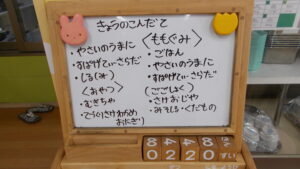 きょうのこんだて
・やさいのうまに
・すぱげてぃ・さらだ
・しる(み)
〈おやつ〉
・むぎちゃ
・てづくりさけわかめおにぎり
〈ももぐみ〉
・ごはん
・やさいのうまに
・すぱげてぃ・さらだ
(ごごしょく)
・さけおじや
・みそしる・くだもの
8 4 4 8
0 2 2 0 すい